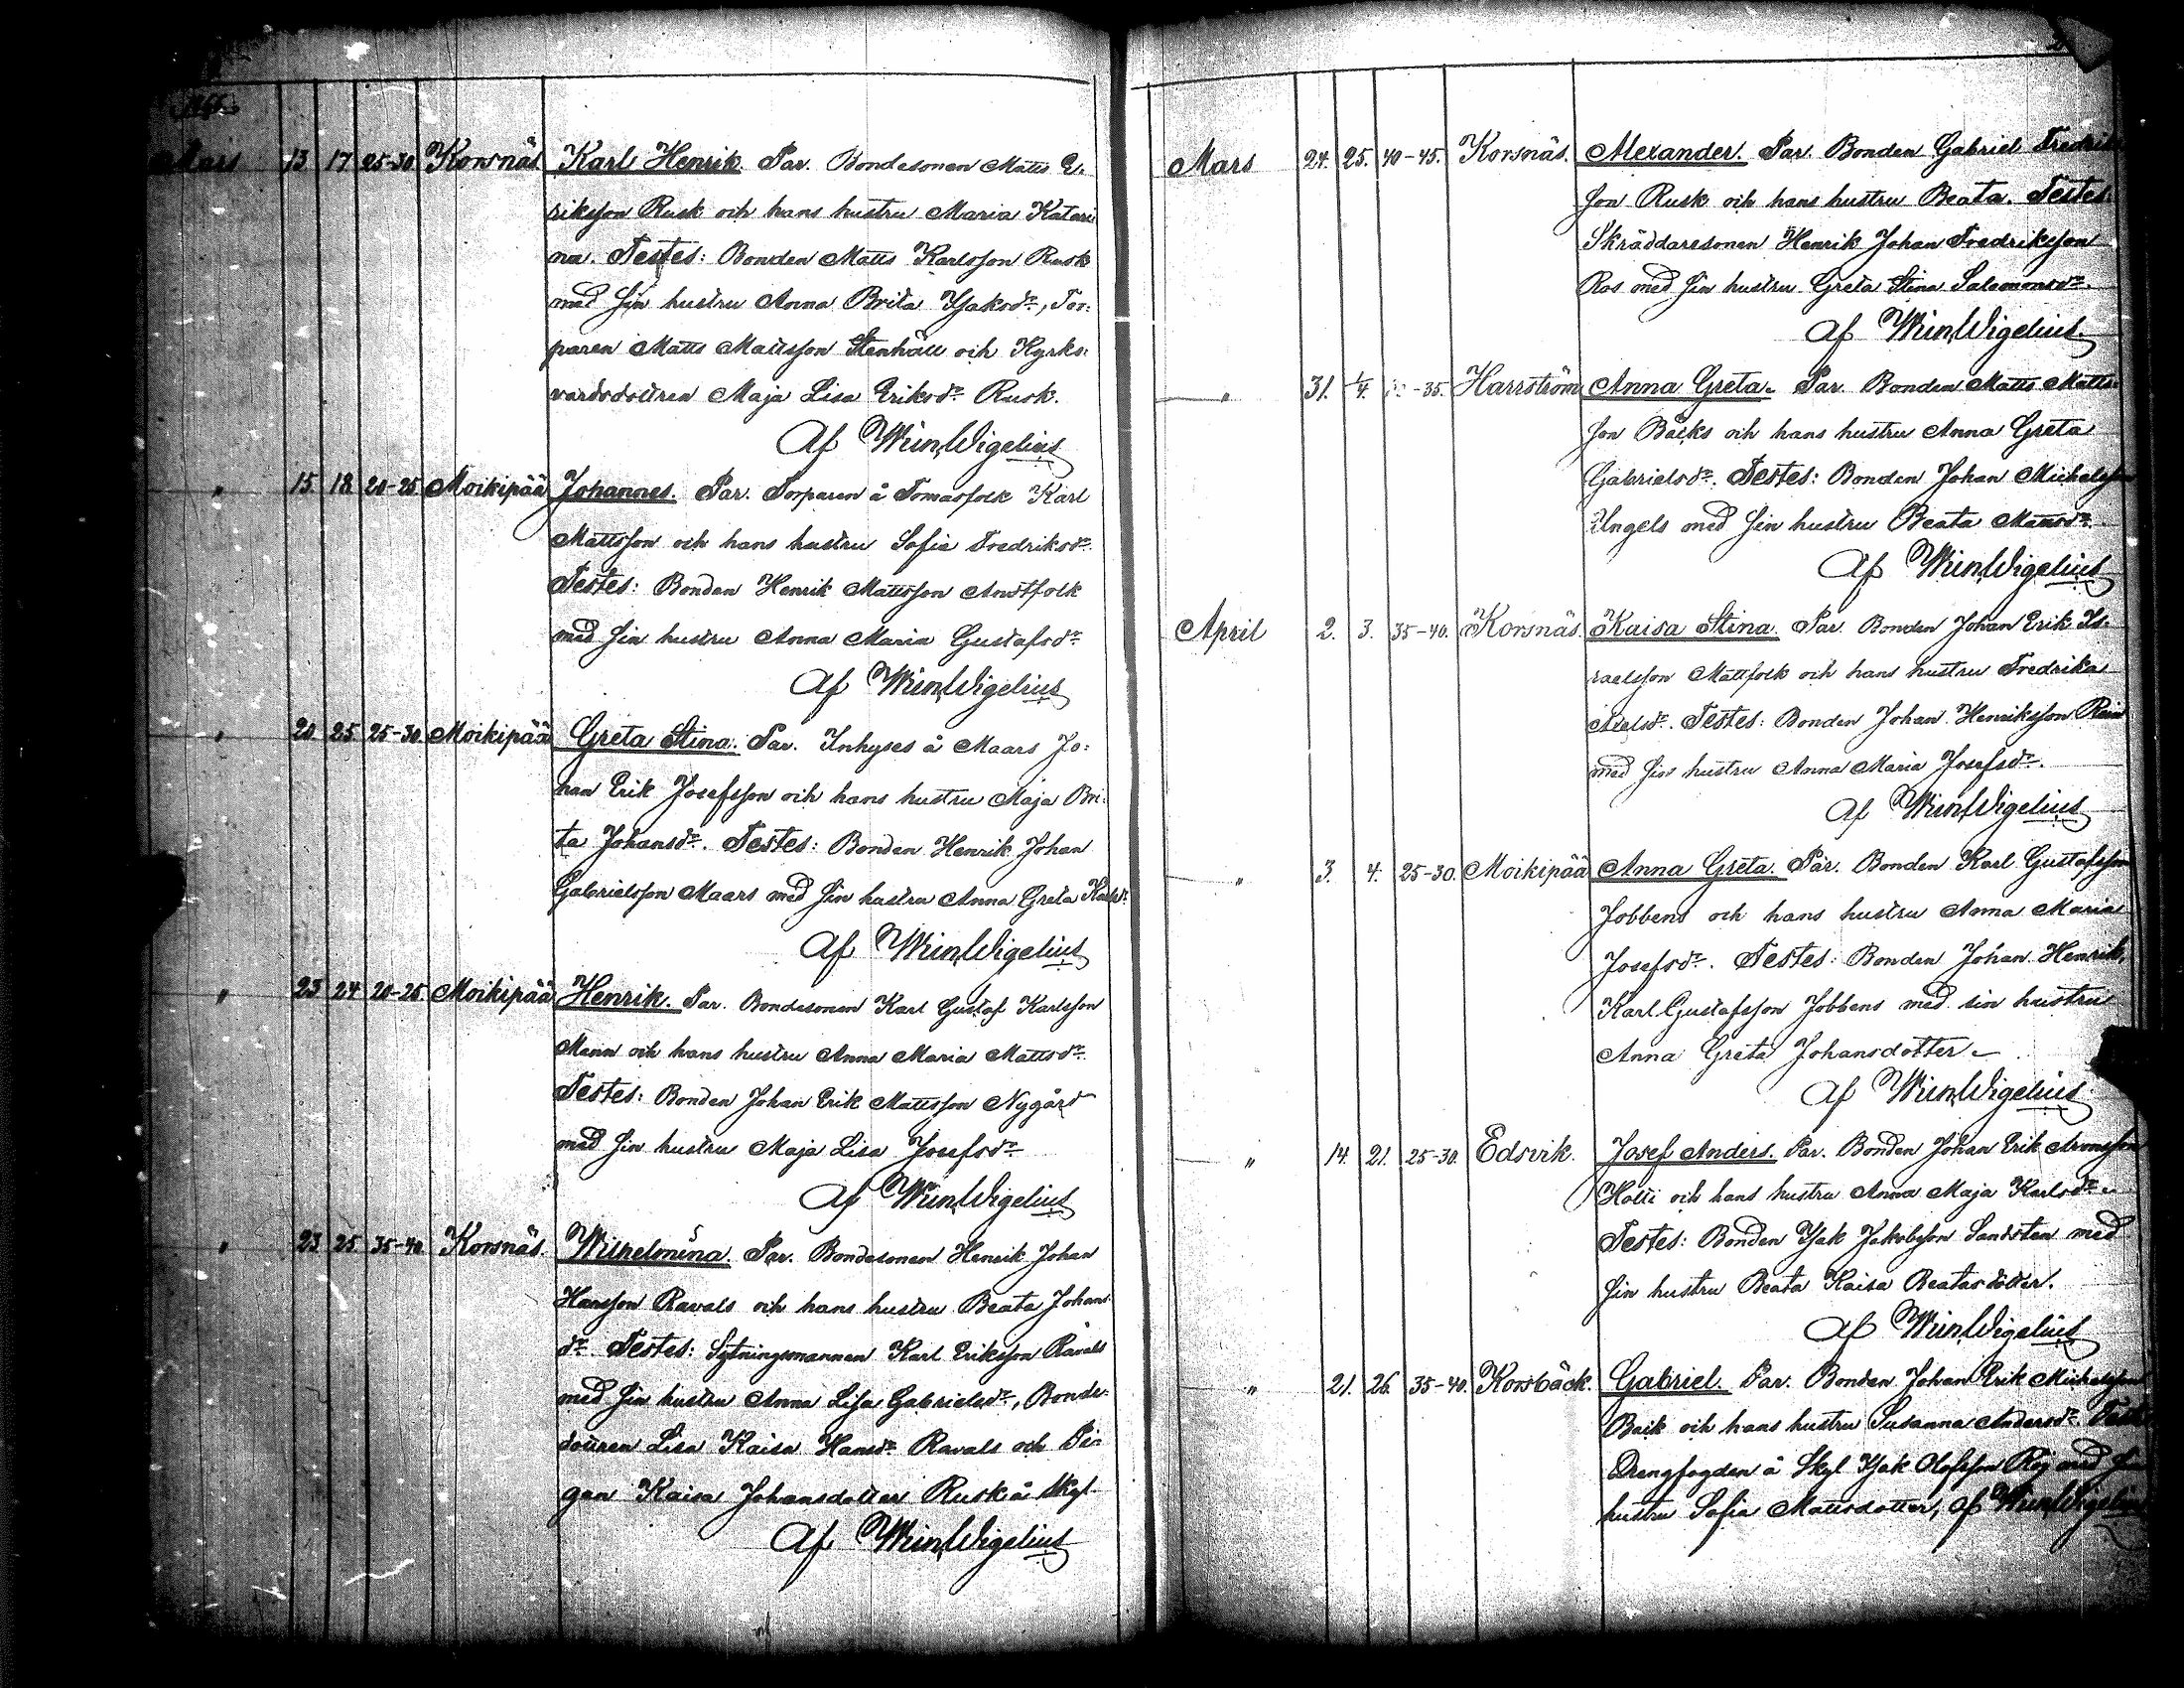 Mars 13 17 25-30 Korsnäs. Karl Henrik. Par. Bondesonen Matts E.
riksson Rusk och hans hustru Maria Katari
na. Testes: Bonden Matts Karlsson Rusk
med sin hustru Anna Brita Isaksdr, Tor:
paren Matts Mattsson Stenhäll och Kyrko:
värdsdottren Maja Lisa Eriksdr Rusk.
Af Wm Wigelius
" 15. 18. 20-25 Moikipää Johannes. Par. Torparen å Tomasfolk Karl
Mattsson och hans hustru Sofia Fredriksdr
Testes: Bonden Henrik Mattsson Anstfolk
med sin hustru Anna Maria Gustafsdr
Af Wm Wigelius
" 20. 25 25-30. Moikipää Greta Stina. Par. Inhyses å Maars Jo:
han Erik Josefsson och hans hustru Maja Bri:
ta Johansdr. Testes: Bonden Henrik Johan
Gabrielsson Maars med sin hustru Anna Greta Karlsdr.
Af Wm Wigelius
" 23 24 20-25 Moikipää Henrik. Par. Bondesonen Karl Gustaf Karlsson
Mann och hans hustru Anna Maria Mattsdr
Testes: Bonden Johan Erik Mattsson Nygård
med sin hustru Maja Lisa Josefsdr
Af Wm Wigelius
" 23 25 35-40 Korsnäs. Wilhelmina. Par. Bondesonen Henrik Johan
Hansson Ravals och hans hustru Beata Johans
dr. Testes: Sytningsmannen Karl Eriksson Ravals
med sin hustru Anna Lisa Gabrielsdr, Bonde:
dottren Lisa Kaisa Hansdr Ravals och Pi:
gan Kaisa Johansdotter Rusk å Skyl.
Af Wm Wigelius
Mars 24. 25. 40-45. Korsnäs. Alexander. Par. Bonden Gabriel Fredrik
son Rusk och hans hustru Beata. Testes:
Skräddaresonen Henrik Johan Fredriksson
Ros med sin hustru Greta Stina Salomonsdr.
Af Wm Wigelius
" 31. 1/4. -35. Harrström Anna Greta. Par. Bonden Matts Matts:
son Bäcks och hans hustru Anna Greta
Gabrielsdr. Testes: Bonden Johan Michelsson
Ungels med sin hustru Beata Mattsdr.
Af Wm Wigelius
April 2. 3. 35-40. Korsnäs. Kaisa Stina. Par. Bonden Johan Erik Is:
raelsson Mattfolk och hans hustru Fredrika
Axelsdr. Testes: Bonden Johan Henriksson
med sin hustru Anna Maria Josefsdr.
Af Wm Wigelius
" 3. 4. 25-30. Moikipää Anna Greta. Par. Bonden Karl Gustafsson
Jobbens och hans hustru Anna Maria
Josefsdr. Testes: Bonden Johan Henrik
Karl Gustafsson Jobbens med sin hustru
Anna Greta Johansdotter.
Af Wm Wigelius
" 14. 21. 25-30. Edsvik. Josef Anders. Par. Bonden Johan Erik Aronsson
Holti och hans hustru Anna Maja Karlsdr.
Testes: Bonden Isak Jakobsson Sandsten med
sin hustru Beata Kaisa Beatasdotter.
Af Wm Wigelius
" 21. 26. 35-40. Korsbäck. Gabriel. Par. Bonden Johan Erik Michelsson
Back och hans hustru Susanna Andersdr. Testes
Drengfogden å Skyl Isak Olofsson Röj med sin
hustru Sofia Mattsdotter, Af Wm Wigelius